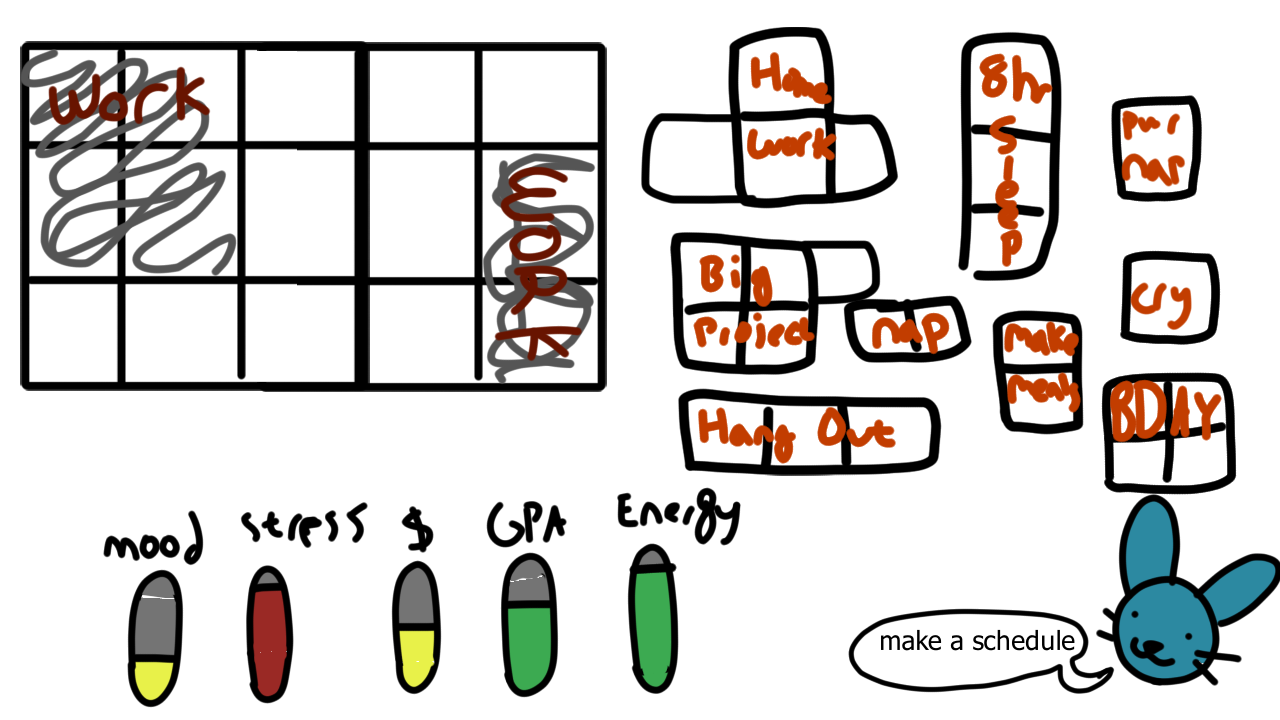 Work
WORK
Home
work
8hr
Sleep
pwr
nap
Big
Project
nap
cry
make
meals
Hang Out
BDAY
mood
stress
$
GPA
Energy
make a schedule